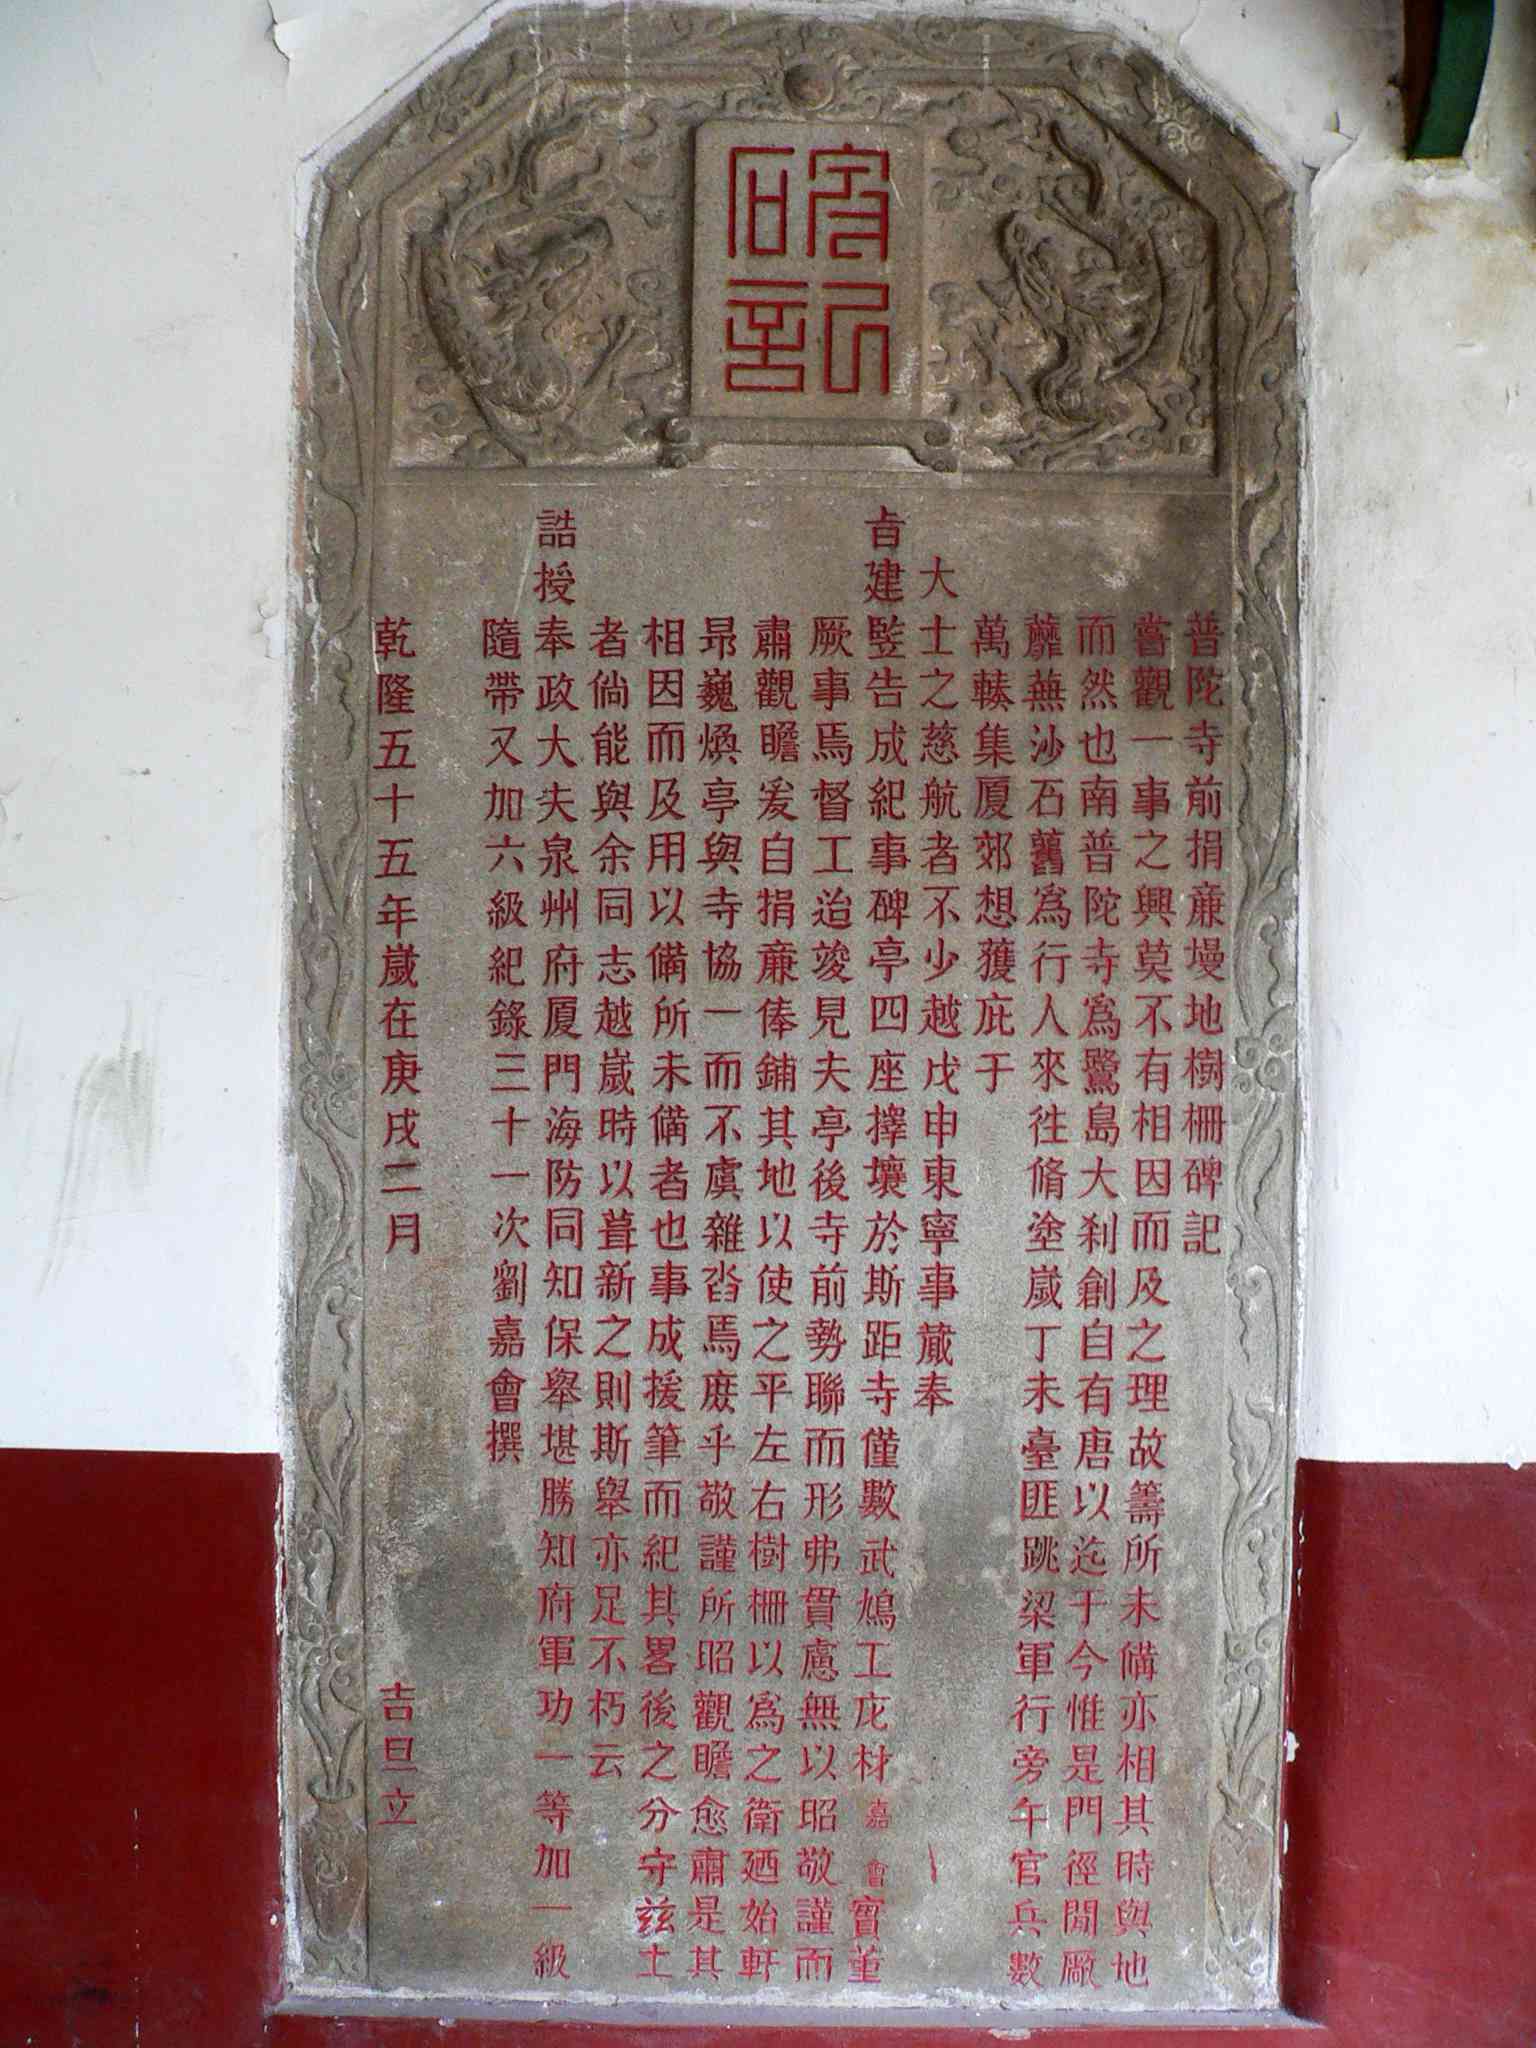 碑記
普陀寺前捐亷墁地樹柵碑記
嘗觀一事之興莫不有相因而及之理故籌所未備亦相其時與地
而然也南普陀寺爲鷺島大刹創自有唐以迄于今惟是門徑閒厰
蘼蕪沙石舊爲行人來徃脩塗嵗丁未臺匪跳梁軍行旁午官兵數
萬轃集厦郊想獲庇于
大士之慈航者不少越戊申東寧事蕆奉
旨建竪告成紀事碑亭四座擇壤於斯距寺僅數武鳩工庀材嘉會實董
厥事焉督工迨竣見夫亭後寺前勢聯而形弗貫慮無以昭敬謹而
肅觀瞻爰自捐亷俸鋪其地以使之平左右樹柵以爲之衛廼始軒
昻巍煥亭與寺協一而不虞雜沓焉庶乎敬謹所昭觀瞻愈肅是其
相因而及用以備所未備者也事成援筆而紀其畧後之分守茲土
者倘能與余同志越嵗時以葺新之則斯舉亦足不朽云
誥授奉政大夫泉州府厦門海防同知保舉堪勝知府軍功一等加一級
隨帶又加六級紀錄三十一次劉嘉會撰
乾隆五十五年嵗在庚戌二月吉旦立